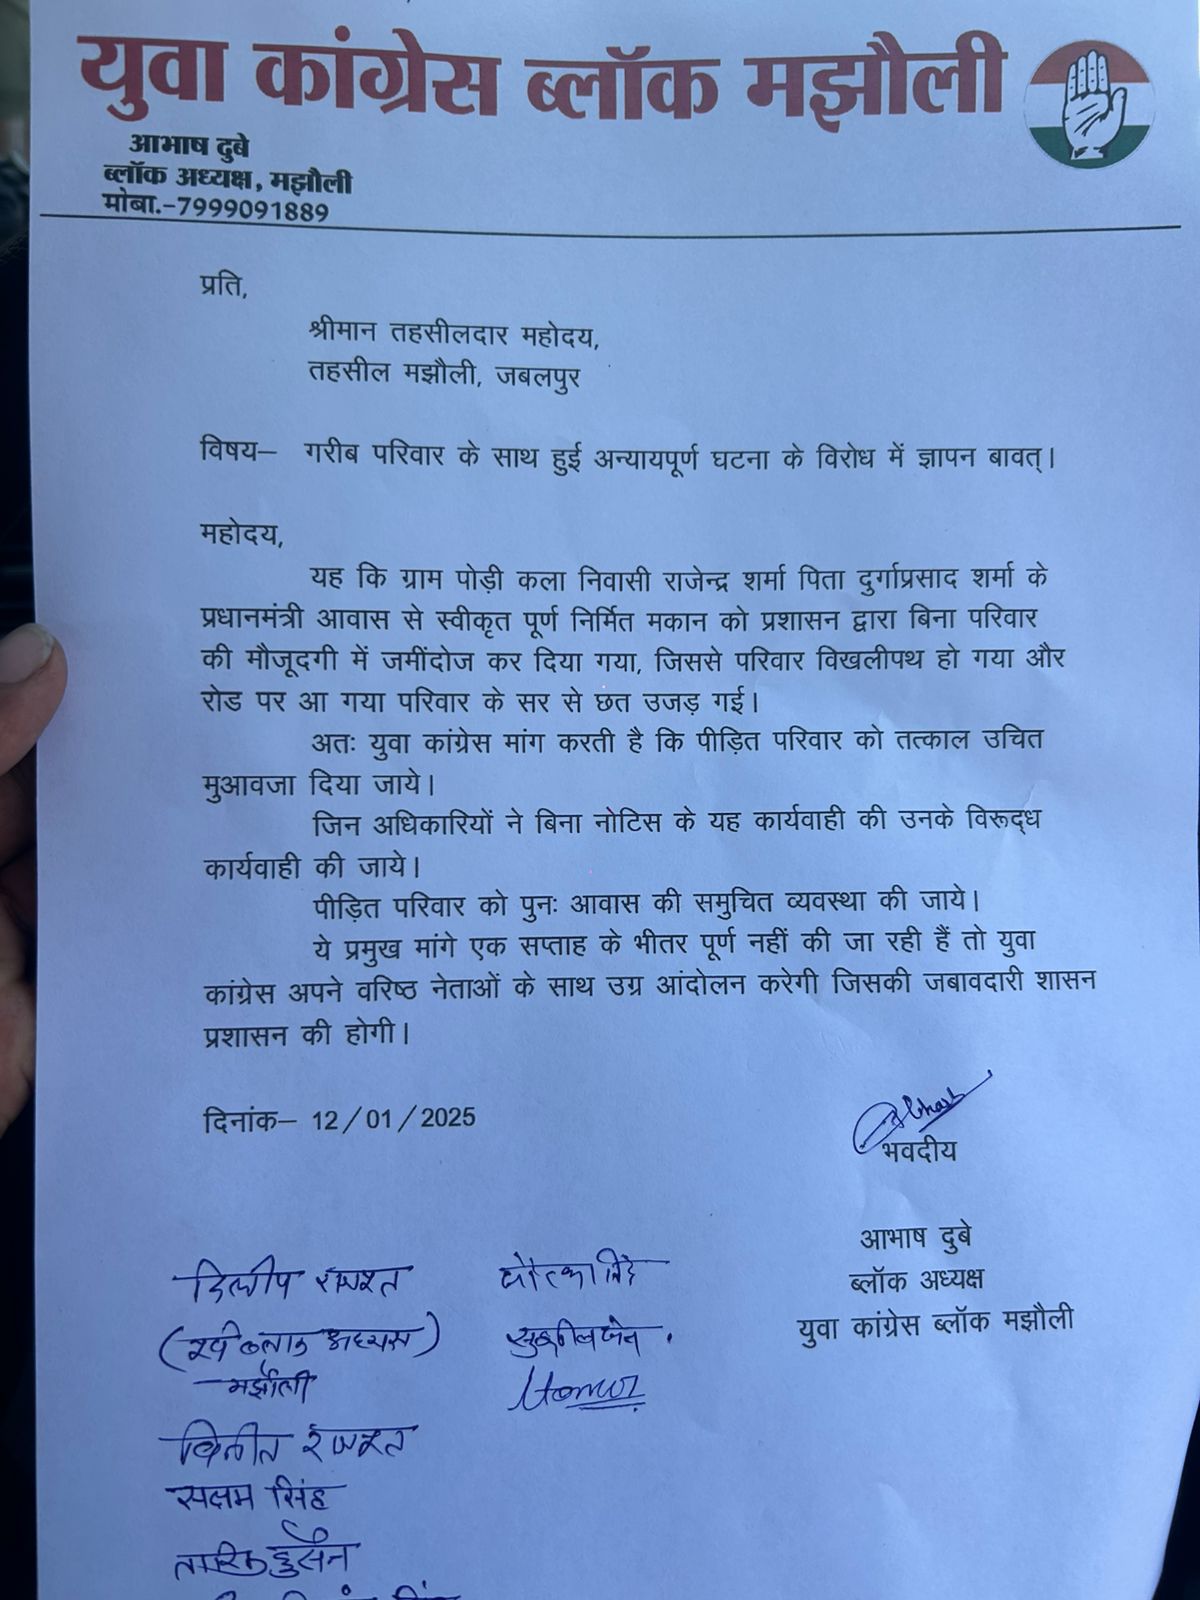 युवा कांग्रेस ब्लॉक मझौली
आभाष दुबे
ब्लॉक अध्यक्ष, मझौली
मोबा.-7999091889
प्रति,
श्रीमान तहसीलदार महोदय,
तहसील मझौली, जबलपुर
विषय– गरीब परिवार के साथ हुई अन्यायपूर्ण घटना के विरोध में ज्ञापन बावत्।
महोदय,
यह कि ग्राम पोड़ी कला निवासी राजेन्द्र शर्मा पिता दुर्गाप्रसाद शर्मा के
प्रधानमंत्री आवास से स्वीकृत पूर्ण निर्मित मकान को प्रशासन द्वारा बिना परिवार
की मौजूदगी में जमींदोज कर दिया गया, जिससे परिवार विखलीपथ हो गया और
रोड पर आ गया परिवार के सर से छत उजड़ गई।
अतः युवा कांग्रेस मांग करती है कि पीड़ित परिवार को तत्काल उचित
मुआवजा दिया जाये।
जिन अधिकारियों ने बिना नोटिस के यह कार्यवाही की उनके विरूद्ध
कार्यवाही की जाये।
पीड़ित परिवार को पुनः आवास की समुचित व्यवस्था की जाये।
ये प्रमुख मांगे एक सप्ताह के भीतर पूर्ण नहीं की जा रही हैं तो युवा
कांग्रेस अपने वरिष्ठ नेताओं के साथ उग्र आंदोलन करेगी जिसकी जबावदारी शासन
प्रशासन की होगी।
दिनांक– 12/01/2025
भवदीय
आभाष दुबे
ब्लॉक अध्यक्ष
युवा कांग्रेस ब्लॉक मझौली
दिलीप
मझौली
सक्षम सिंह
हुसैन